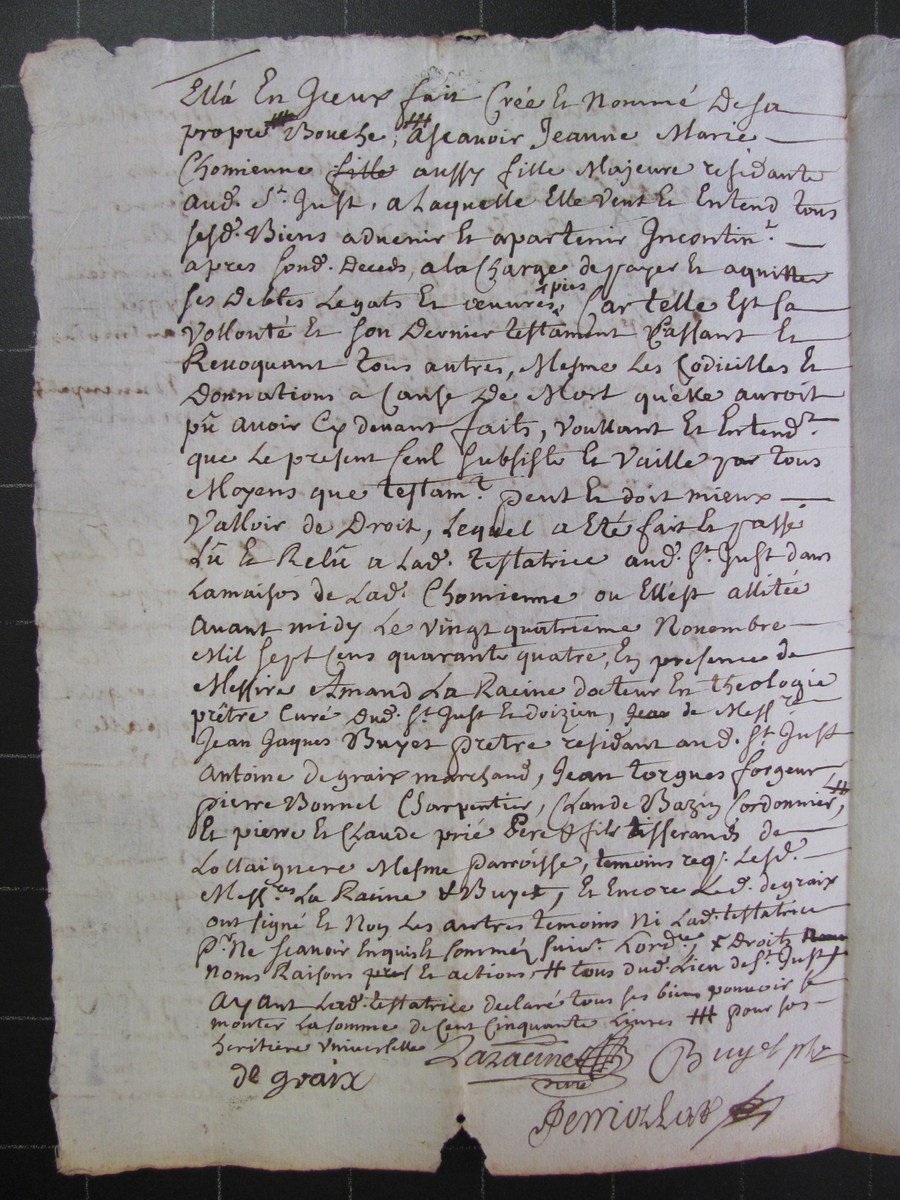 Ellá En Iceux fait Crée Et Nommé De sa
propre Bouche, ascavoir Jeanne Marie
Chomienne fille aussy fille Majeure residante
aud. St. Just, a Laquelle Elle veut Et Entend tous
sesd. Biens advenir Et apartenir Incontint.
apres sond. Deceds, a la Charge de payer Et aquitter
ses Debtes Legats Et œuvres pies, Car telle Est sa
Vollonté Et son Dernier testament Cassant Et
Revoquant tous autres, Mesme Les Codicilles Et
Donnations a Cause De Mort qu'elle auroit
pû avoir Cy devant faits, Voullant Et Entendt.
que Le present seul subsiste Et Vaille par tous
Moyens que testamt. peut Et doit mieux
Valloir de Droit, Lequel a Eté fait Et passé
Lû Et Relû a Lad. testatrice aud. St. Just dans
Lamaison de Lad. Chomienne ou Ell'est allitée
avant midy Le vingt quatrieme Novembre
Mil sept Cens quarante quatre, En presence de
Messire Amand La Racine docteur En theologie
prêtre Curé dud. St. Just En doizieu, de Messre
Jean Jaques Buyet prêtre residant aud. St. Just
Antoine de graix marchand, Jean torgues forgeur,
pierre Bonnel Charpentier, Claude Bazin Cordonnier,
Et pierre Et Claude prié Pere & fils tisserands de
Mesme parroisse, temoins reqs. Lesd.
Messres. La Racine & Buyet, Et Encore Led. degraix
ont signé Et Non Les autres temoins Ni Lad. testatrice
pr. Ne scavoir Enquis Et sommés suivt. Lordce, & Droits
Noms Raisons Et actions # tous dud. Lieu de St. Just
Ayant Lad. testatrice declaré tous ses biens pouvoir se
monter La somme de Cent Cinquante Livres # pour son
heritiere Universelle Lazacine Buyet ptre
de graix curé